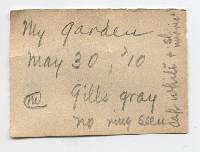 My garden
May 30, '10
Gills gray
no ring seen
Cap white &